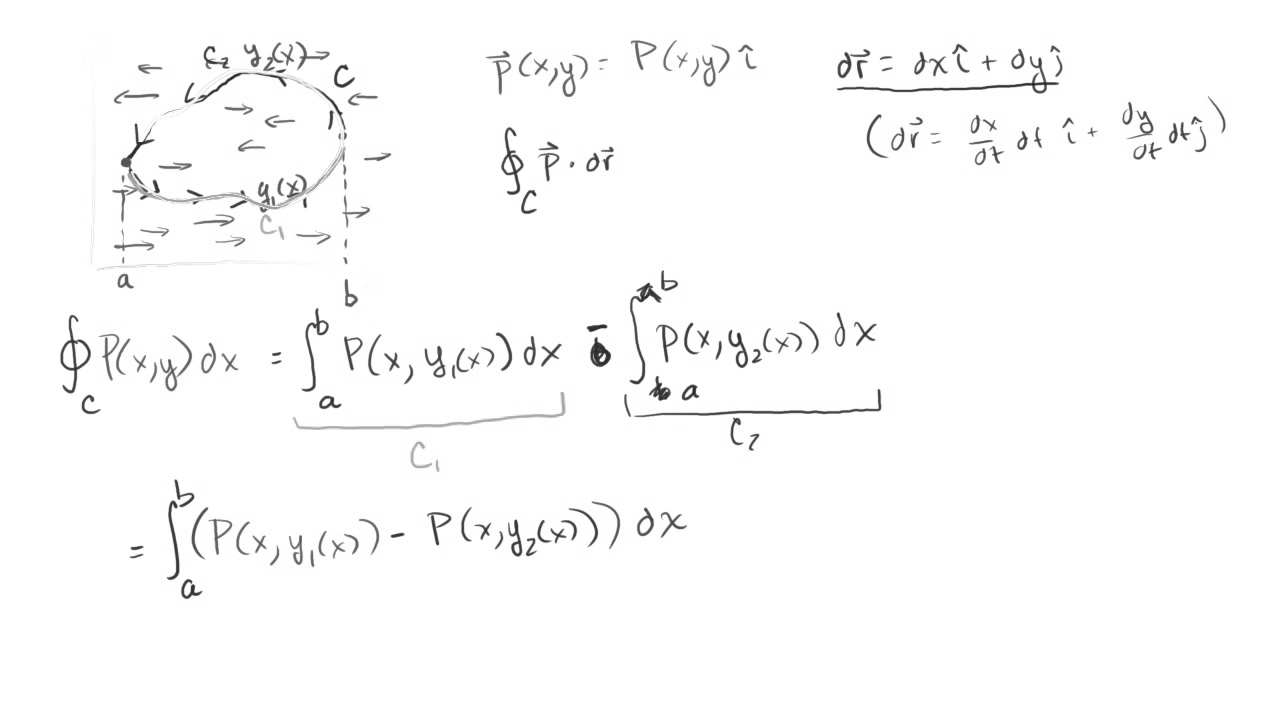 C₂ y₂(x)
C
y₁(x)
C₁
a
b
p⃗(x,y) = P(x,y) î
∮_C p⃗ · dr⃗
dr⃗ = dx î + dy ĵ
(dr⃗ = dx/dt dt î + dy/dt dt ĵ)
∮_C P(x,y) dx = ∫_a^b P(x, y₁(x)) dx - ∫_a^b P(x, y₂(x)) dx
C₁
C₂
= ∫_a^b (P(x, y₁(x)) - P(x, y₂(x))) dx